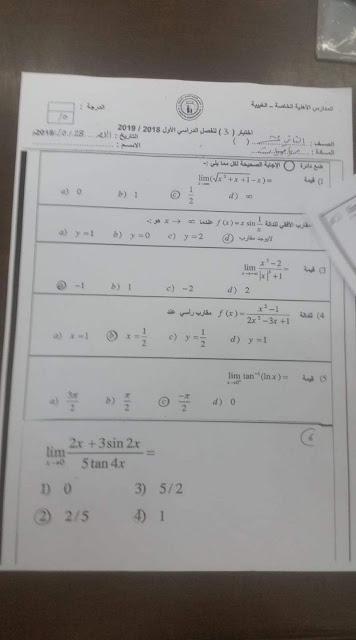 المدارس الأهلية الخاصة – العقيبة
الدرجة :
/٥
اختبار ( 3 ) للفصل الدراسي الأول 2018 / 2019
الصف :
التاريخ :
المادة :
الاسم :
ضع دائرة ◯ الإجابة الصحيحة لكل مما يلي :-
1) قيمة lim x→∞ (√x²+x+1 − x) =
a) 0 b) 1 c) 1/2 d) ∞
مقارب الأفقي للدالة f(x) = x sin 1/x عندما x → ∞ هو :-
a) y = 1 b) y = 0 c) y = 2 d) لايوجد مقارب
3) قيمة lim x→−∞ (x³ − 2)/(|x|³ + 1) =
a) −1 b) 1 c) −2 d) 2
4) للدالة f(x) = (x² − 1)/(2x² − 3x + 1) مقارب رأسي عند
a) x = 1 b) x = 1/2 c) y = 1/2 d) y = 1
5) قيمة lim x→0⁺ tan⁻¹(ln x) =
a) 3π/2 b) π/2 c) −π/2 d) 0
6
lim x→0 (2x + 3 sin 2x)/(5 tan 4x) =
1) 0 3) 5/2
2) 2/5 4) 1